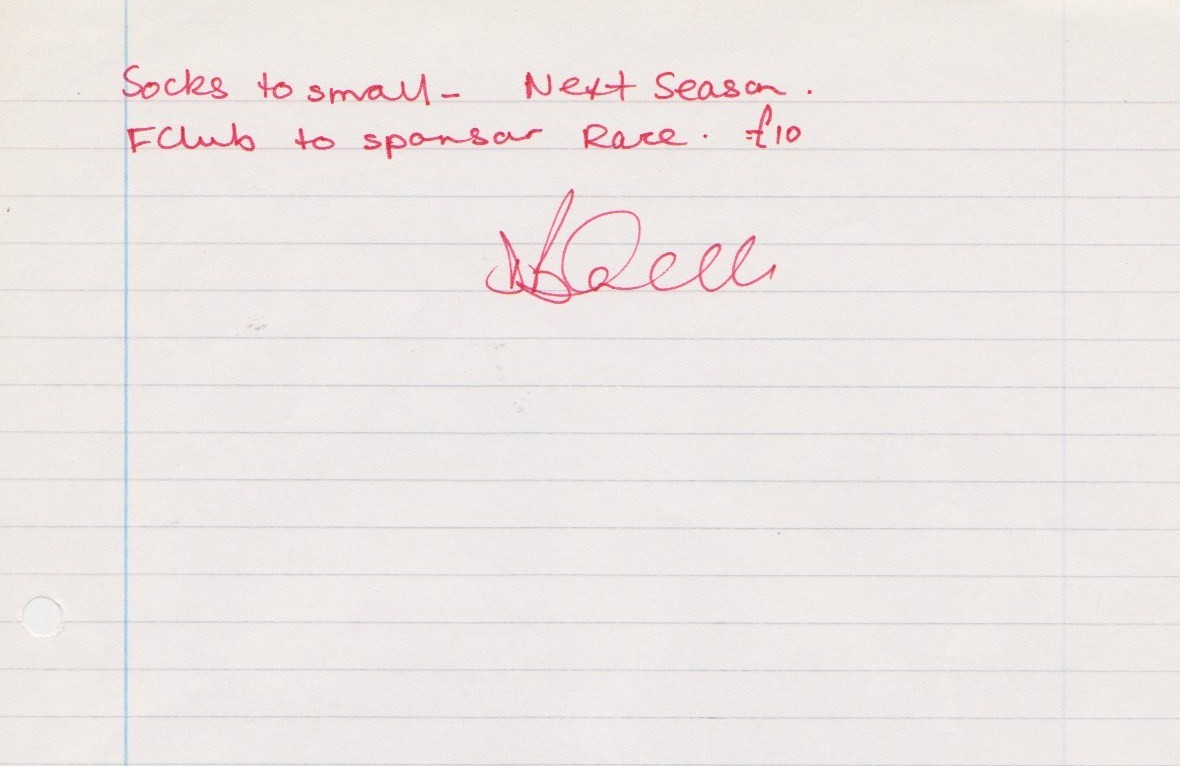 Socks to small - Next Season.
FClub to sponsor Race. £10